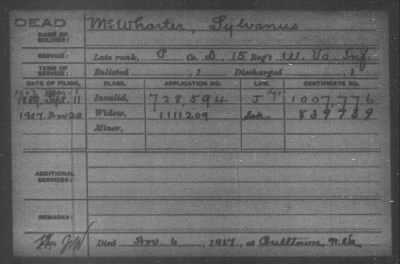 DEAD
NAME OF SOLDIER:
McWhorter, Sylvanus
SERVICE:
Late rank, P Co. D, 15 Reg't W. Va. Inf.
TERM OF SERVICE:
Enlisted , 1 Discharged , 1
DATE OF FILING. CLASS. APPLICATION NO. LAW. CERTIFICATE NO.
1889, Sept. 11 Invalid, 728,594 J 1007,776
1917 Nov 28 Widow, 1111209 839739
Minor,
ADDITIONAL SERVICES:
REMARKS:
Died Nov. 6, 1917, at Bulltown, W. Va.